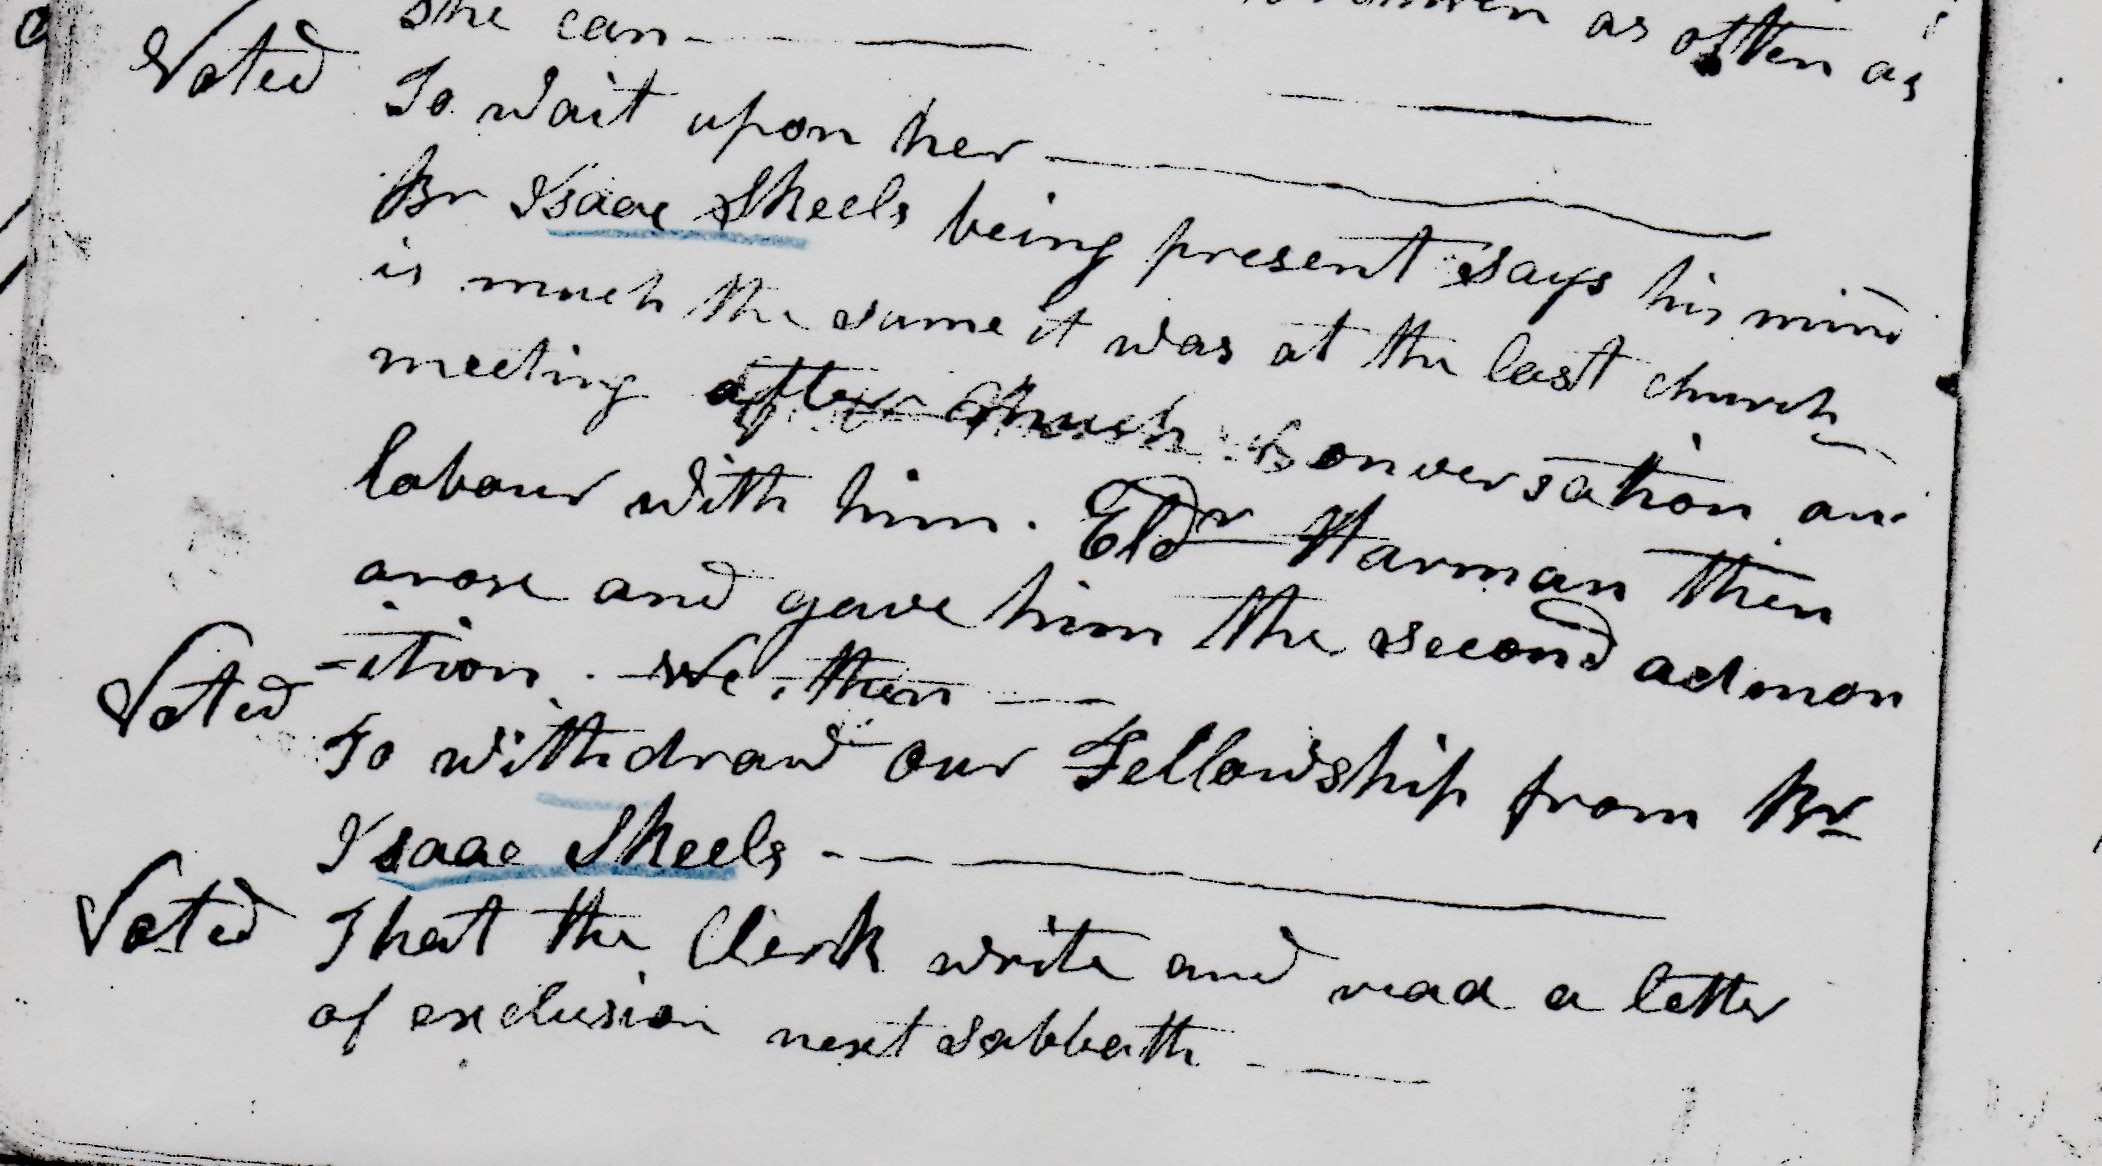 as often as
she can
Voted To wait upon her
Br Isaac Skeels being present says his mind
is much the same it was at the last church
meeting after much conversation an
labour with him. Eldr Harman then
arose and gave him the second admon
-ition. We then
Voted To withdraw our Fellowship from Br
Isaac Skeels
Voted That the Clerk write and read a letter
of exclusion next sabbath